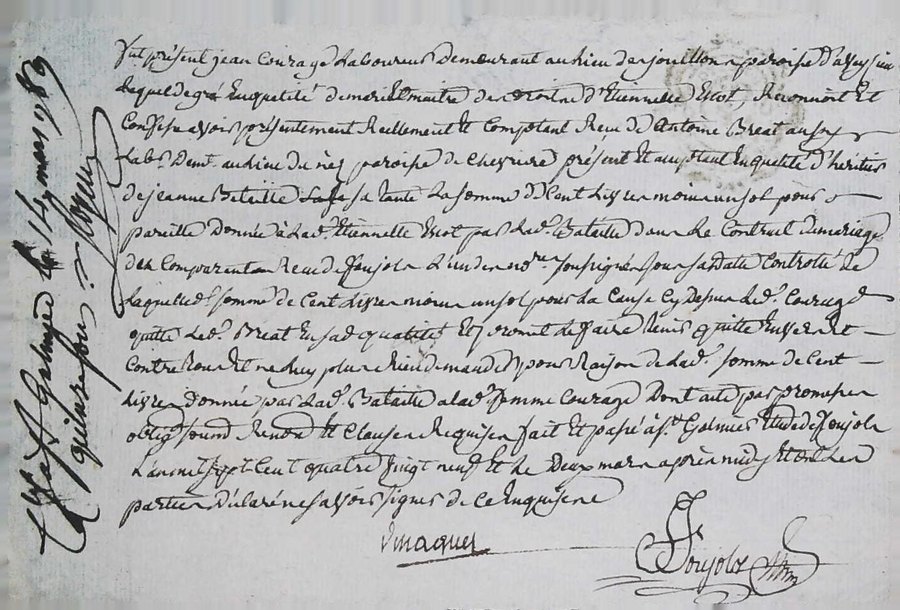 fut présent jean Courage Laboureur demeurant au lieu de jouillon paroisse d'aveysieu
Lequel de gré En qualité de mari et maitre des droits d'Etiennette Escot, Reconnoit Et
Confesse avoir présentement Reellement Et Comptant Reçu de Antoine Breat aussy
Labr Demt au lieu du paroisse de Chevriere présent Et acceptant En qualité d'heritier
de jeanne Bataille sa tante La somme de Cent Livres moins un sol pour
pareille Donnée à Lade Etiennette Escot par Lade Bataille dans Le Contrat de mariage
des Comparents Reçu de foujols L'un des nores soussignés sous sa datte Controllé de
Laquelle de somme de Cent Livres moins un sol pour La Cause Cy Dessus Led. Courage
quitte Led. Breat En sad qualité Et promet Le faire tenir quitte Envers Et
Contre tous Et ne Luy plus Rien demander pour Raison de Lade somme de Cent
Livres donnée par Lade Bataille a lade femme Courage Dont acte par promesses
oblig Renon Et Clauses Requises fait Et passé à St Galmier Etude de foujols
L'an mil sept Cent quatre vingt neuf Et Le Deux mars après midy Et ont Les
parties Déclaré ne savoir signer de Ce Enquises
foujols Nre
a St Galmier le 14 mars 1789
quinze sous